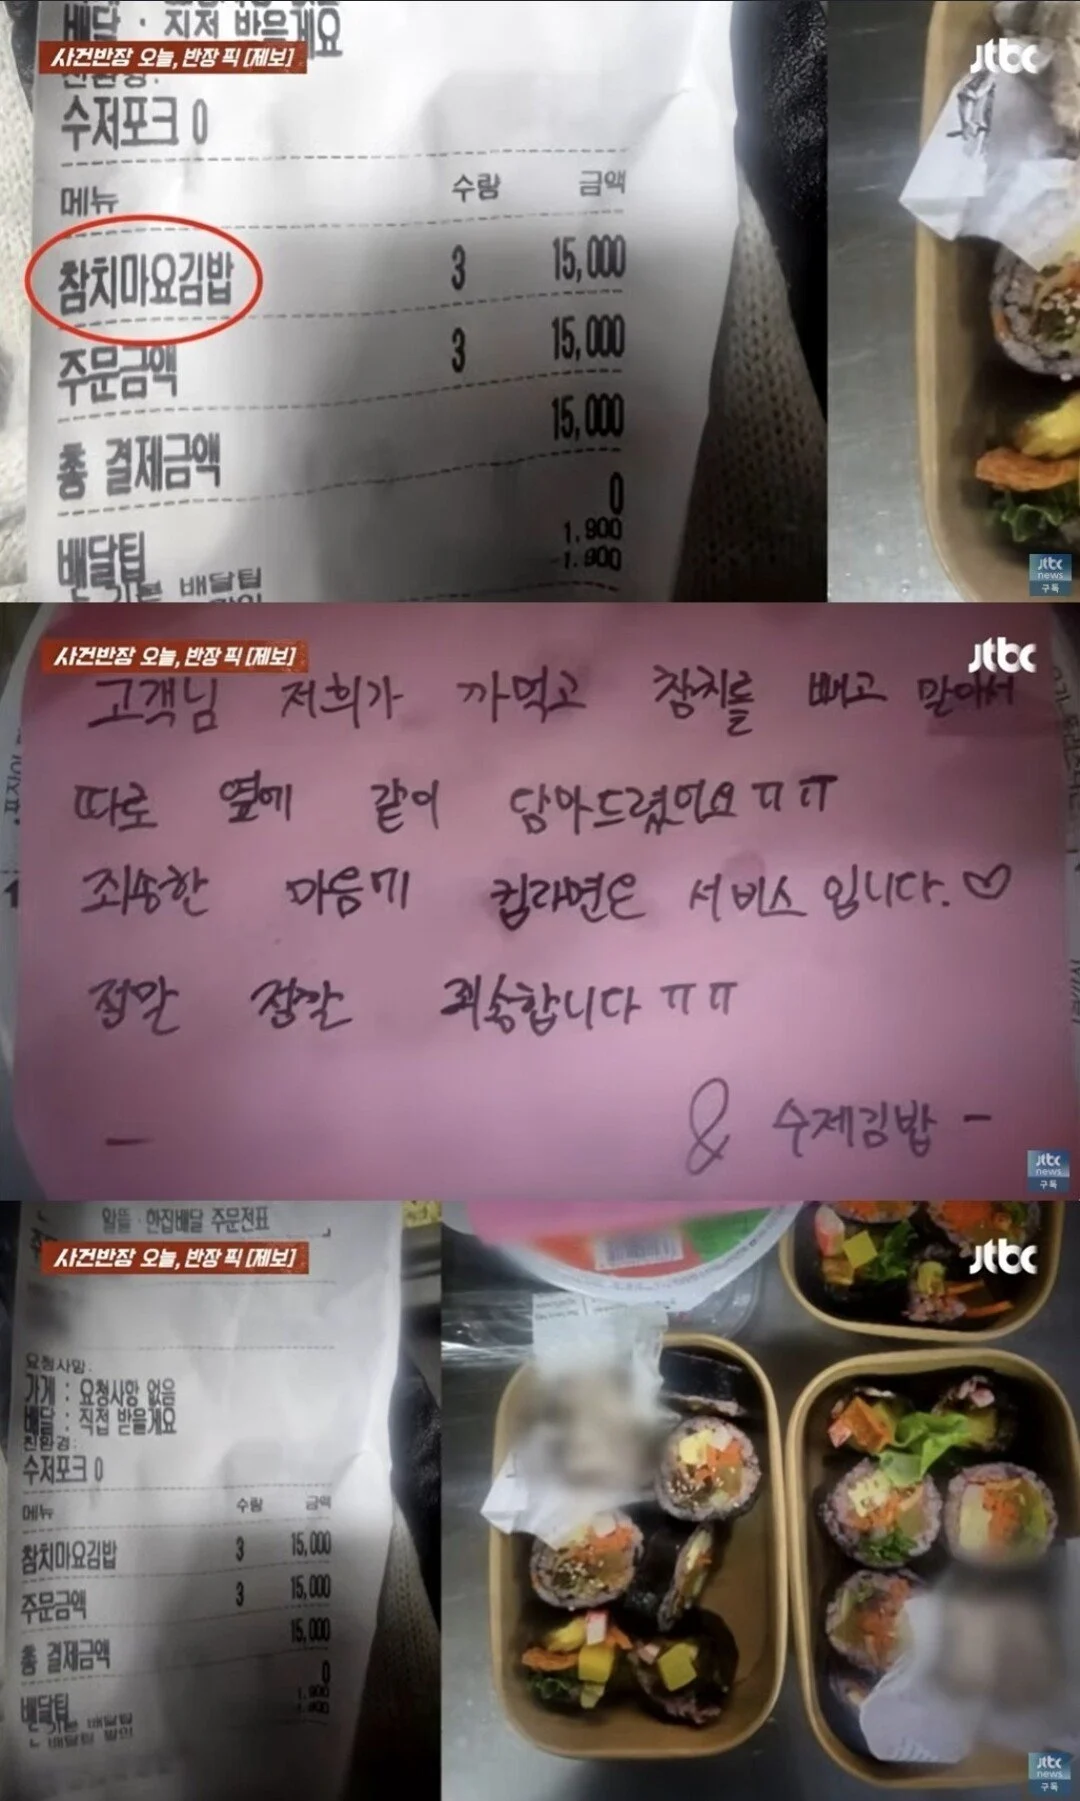 배달 : 직접 받을게요
사건반장 오늘, 반장 픽 [제보]
jtbc
친환경:
수저포크 0
메뉴 수량 금액
참치마요김밥 3 15,000
주문금액 3 15,000
총 결제금액 15,000
배달팁 0
1,900
-1,900
jtbc
news
구독
사건반장 오늘, 반장 픽 [제보]
jtbc
고객님 저희가 까먹고 참치를 빼고 말아서
따로 옆에 같이 담아드렸어요 ㅠㅠ
죄송한 마음에 컵라면은 서비스 입니다.♡
정말 정말 죄송합니다 ㅠㅠ
& 수제김밥 -
jtbc
news
구독
알뜰·한집배달 주문전표
사건반장 오늘, 반장 픽 [제보]
jtbc
요청사항:
가게 : 요청사항 없음
배달 : 직접 받을게요
친환경:
수저포크 0
메뉴 수량 금액
참치마요김밥 3 15,000
주문금액 3 15,000
총 결제금액 15,000
배달팁 0
1,900
-1,900
jtbc
news
구독